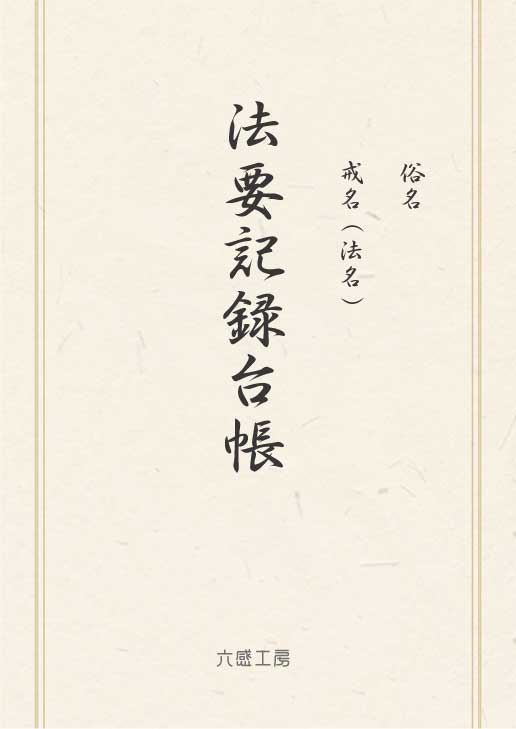 俗名
戒名(法名)
法要記録台帳
六感工房